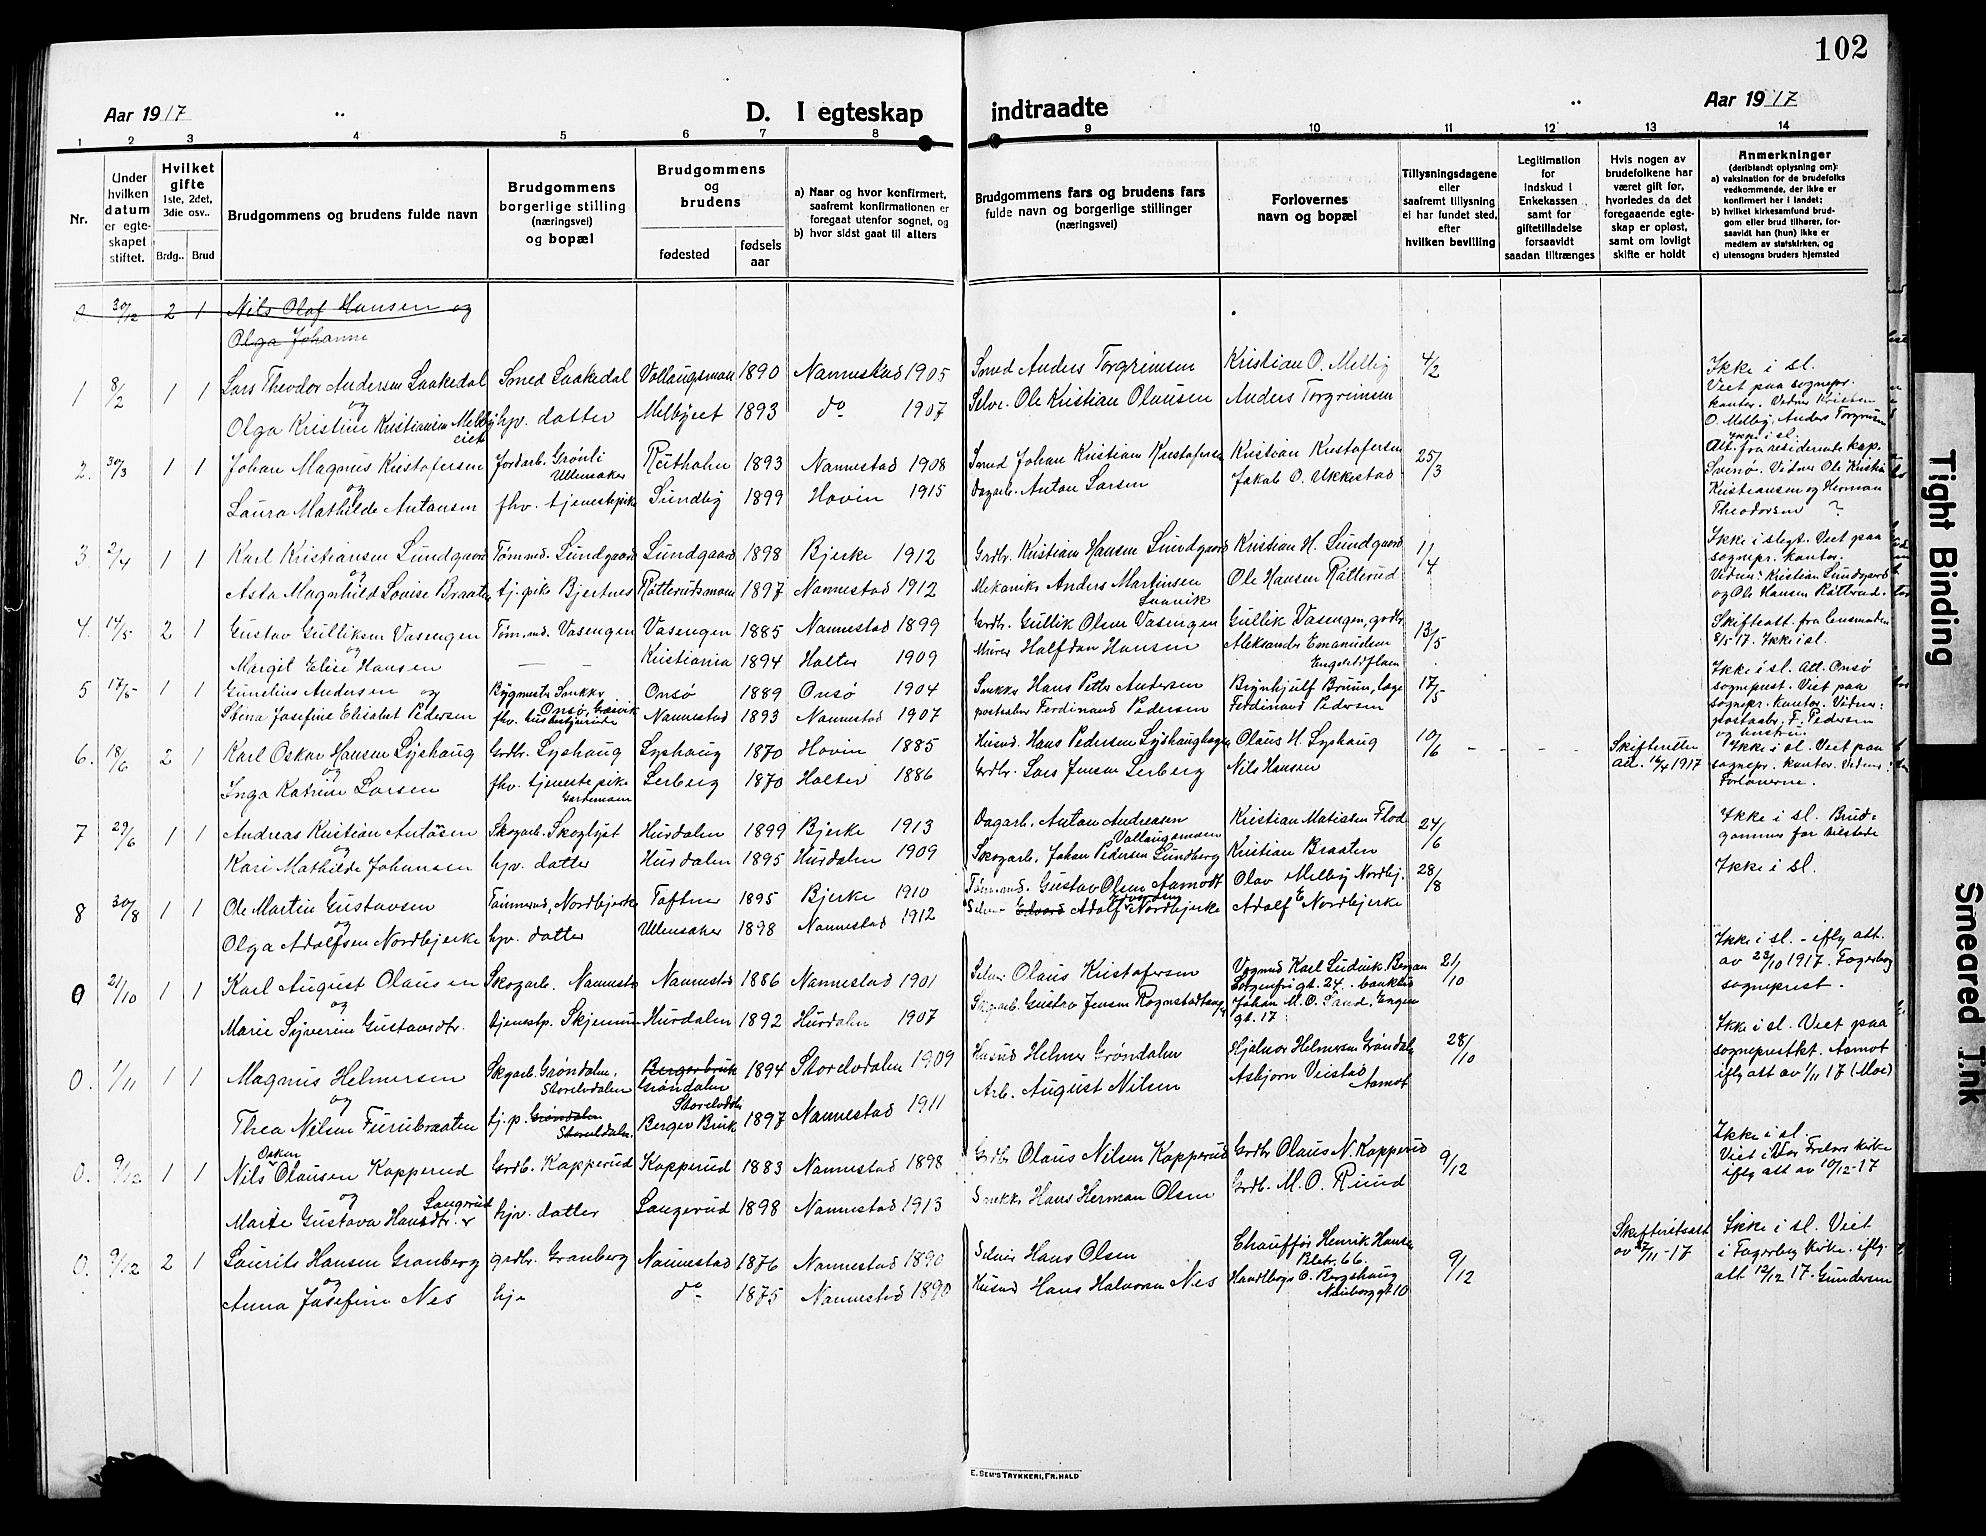 102
Aar 1917
D. I egteskap indtraadte
Aar 1917
1 2 3 4 5 6 7 8 9 10 11 12 13 14
Nr.
Under hvilken datum er egteskapet stiftet.
Hvilket gifte 1ste, 2det, 3die osv..
Brdg.. Brud
Brudgommens og brudens fulde navn
Brudgommens borgerlige stilling (næringsvei) og bopæl
Brudgommens og brudens
fødested
fødsels aar
a) Naar og hvor konfirmert, saafremt konfirmationen er foregaat utenfor sognet, og
b) hvor sidst gaat til alters
Brudgommens fars og brudens fars fulde navn og borgerlige stillinger (næringsvei)
Forlovernes navn og bopæl
Tillysningsdagene eller saafremt tillysning ei har fundet sted, efter hvilken bevilling
Legitimation for indskud i Enkekassen samt for giftetilladelse forsaavidt saadan tiltrænges
Hvis nogen av brudefolkene har været gift før, hvorledes da det foregaaende egteskap er opløst, samt om lovligt skifte er holdt
Anmerkninger
(deriblandt oplysning om):
a) vaksination for de brudefolks vedkommende, der ikke er konfirmert her i landet;
b) hvilket kirkesamfund brudgom eller brud tilhører, forsaavidt han (hun) ikke er medlem av statskirken, og
c) utensogns bruders hjemsted
0. 30/12 2 1 Nils Olaf Hansen og
Olga Johanne
1 8/2 1 1 Lars Theodor Andersen Laakedal Smed Laakedal Vollaugsmoen 1890 Nannestad 1905 Smed Anders Torgrimsen Kristian O. Melby 4/2 Ikke i sl. Viet paa sognepr. kantor. Vidner Kristian O. Melby, Anders Torgrimsen
og
Olga Kristine Kristiansen Melbyeiet hjv. datter Melbyeet 1893 do 1907 Selve. Ole Kristian Olausen Anders Torgrimsen
2. 30/3 1 1 Johan Magnus Kristofersen Jordarb. Grønli Ullensaker Rütholm 1893 Nannestad 1908 Smed Johan Kristian Kristofersen Kristian Kristofersen 25/3 Ikke i sl. Att. fra residerende kap. Svenø. Vidner Ole Kristian Kristiansen og Herman Theodorsen ?
og
Laura Mathilde Antonsen fhv. tjenestepike Sundby 1899 Hovin 1915 Dagarb. Anton Larsen Jakob O. Ukkestad
3. 2/4 1 1 Karl Kristiansen Lundgaard Tømmd. Lundgaard Lundgaard 1898 Bjerke 1912 Grdbr. Kristian Hansen Lundgaard Kristian H. Lundgaard 1/4 Ikke i slegt. Viet paa sognepr. kantor. Vidner: Kristian Lundgaard og Ole Hansen Rätterud.
og
Asta Magnhild Lovise Braaten tj. pike Bjertnes Rätterudsmoen 1897 Nannestad 1912 Mekanike Anders Martinsen Laavik Ole Hansen Rätterud
4. 14/5 2 1 Gustav Gulliksen Vasengen Tømmd. Vasengen Vasengen 1885 Nannestad 1899 Grdbr. Gullik Olsen Vasengen Gullik Vasengen, grdbr. 13/5 Skifteatt. fra lensmanden 8/5 17. Ikke i sl.
og
Margit Elise Hansen — — Kristiania 1894 Holter 1909 Murer Halfdan Hansen Aleksander Emanuelsen
5 17/5 1 1 Gunelius Andersen og Bygmester Snekker Onsø, Græsvik Onsø 1889 Onsø 1904 Snekker Hans Petter Andersen Brynhjulf Bruun, læge 17/5 Ikke i sl. Att. Onsø sogneprest. Viet paa sognepr. kantor. Vidner: postaabr. F. Pedersen og hustru.
Stina Josefine Elisabet Pedersen fhv. Nannestad 1893 Nannestad 1907 postaabner Ferdinand Pedersen Ferdinand Pedersen
6. 18/6 2 1 Karl Oskar Hansen Lyshaug Grdbr. Lyshaug Lyshaug 1870 Hovin 1885 Husmd. Hans Pedersen Lyshaughagen Olaus H. Lyshaug 10/6 - - - Skifteretten att. 16/4 1917 Ikke i sl. Viet paa sognepr. kantor. Vidner: Forloverne.
og
Inga Katrine Larsen fhv. tjenestepike Gardemoen Lerberg 1870 Holter 1886 Grdbr. Lars Jensen Lerberg Nils Hansen
7 29/6 1 1 Andreas Kristian Antonsen Skogarb. Skoglyst Hurdalen 1899 Bjerke 1913 Dagarb. Anton Andreasen Vollaugsmoen Kristian Matiasen Flod 24/6 Ikke i sl. Brudgommens far tilstede
og
Kari Mathilde Johansen hjv. datter Hurdalen 1895 Hurdalen 1909 Skogarb. Johan Pedersen Lundberg Kristian Braaten Ikke i sl.
8 30/8 1 1 Ole Martin Gustavsen Tømmermd, Nordbjerke Toftner 1895 Bjerke 1910 Tømmermd. Gustav Olsen Aamodt Olav Melby Nordbj. 28/8
og
Olga Adolfsen Nordbjerke hjv. datter Ullensaker 1898 Nannestad 1912 Selve- Edvard Adolf Edvardsen Nordbjerke Adolf E Nordbjerke
0 21/10 1 1 Karl August Olausen Skogarb. Nannestad Nannestad 1886 Nannestad 1901 Selveier Olaus Kristofersen Vognmd Karl Ludvik Bergan Sorgenfrigt. 24. 21/10 Ikke i sl. - iflg att. av 23/10 1917. Fagerborg sogneprest.
og
Marie Syverine Gustavsdtr. tjenestep. Skjennum Hurdalen 1892 Hurdalen 1907 Skogarb. Gustav Jensen Rognstadhaug Johan M. O. Sand, Engen gt. 17
0. 1/11 1 1 Magnus Helmersen Skgarb. Grøndalen, Storelvdalen Bergerbruk Grøndalen Storelvdalen 1894 Storelvdalen 1909 Husmd Helmer Grøndalen Hjalmar Helmersen Grøndalen 28/10 Ikke i sl. Viet paa sogneprestkt. Aamot iflg att av 1/11 17 (Moe)
og
Thea Nilsen Furubraaten tj. p. Grøndalen Storeldalen Berger Bruk 1897 Nannestad 1911 Arb. August Nilsen Asbjørn Veistad Aamot
0. 9/12 1 1 Nils Oskar Olausen Kopperud Grdb. Kopperud Kopperud 1883 Nannestad 1898 Grdbr Olaus Nilsen Kopperud Grdbr Olaus N. Kopperud 9/12 Ikke i sl. Viet i Vor Frelsers kirke iflg att av 10/12-17
og
Marie Gustava Hansdtr. Langerud hjv. datter Langerud 1898 Nannestad 1913 Snekker Hans Herman Olsen Grdb. M. O. Ruud
0. 9/12 2 1 Laurits Hansen Granberg grdbr. Granberg Nannestad 1876 Nannestad 1890 Selveier Hans Olsen Chauffør Henrik Hansen Pilestr. 66. 9/12 Skifteretsatt av 27/11-17 Ikke i sl. Viet i Fagerborg kirke. iflg. att 12/12 17. Gundersen
og
Anna Josefine Nes hje do 1875 Nannestad 1890 Husmd Hans Halvorsen Nes Handlbgs O. Bergshaug
E. SEM'S TRYKKERI, FR.HALD
Tight Binding
Smeared Ink